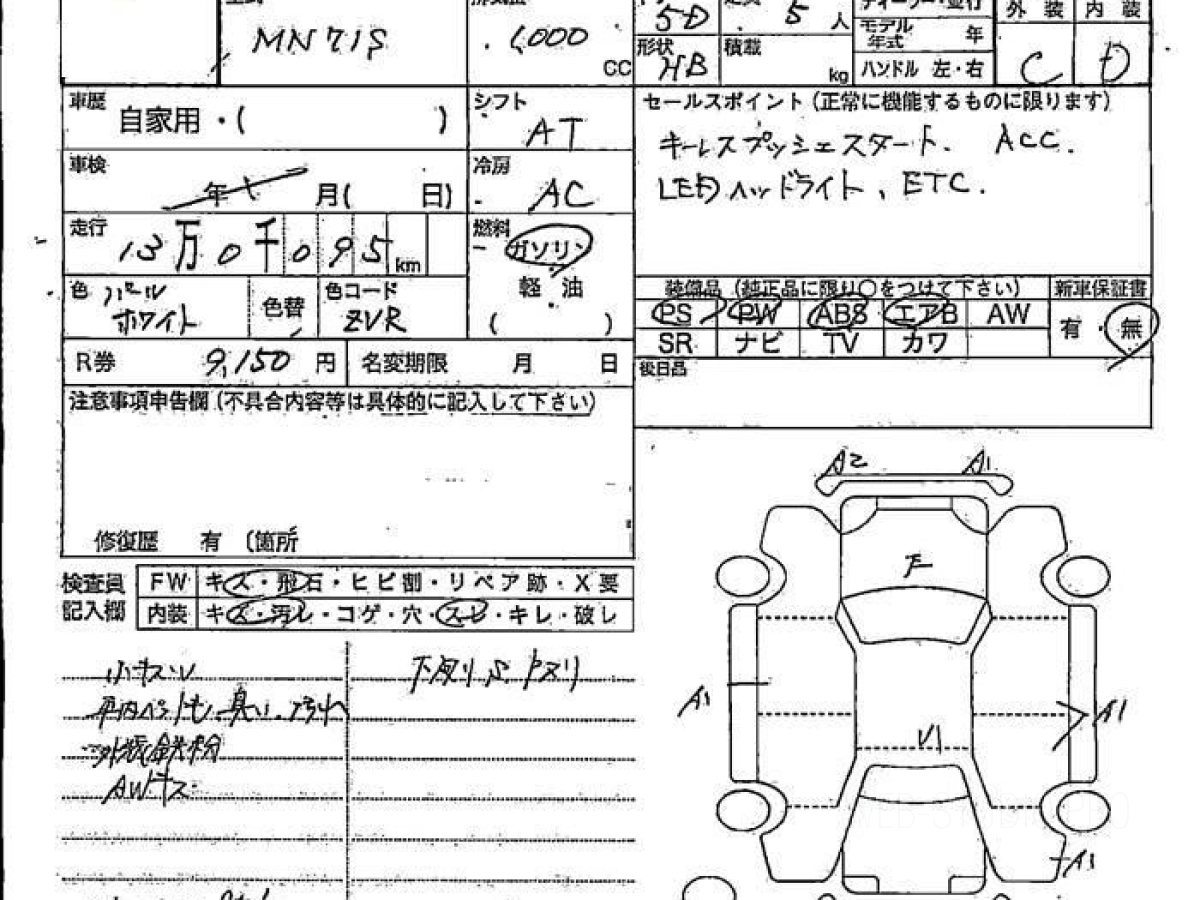 MN71S
1,000
CC
5D
形状
HB
5 人
積載
kg
モデル
年式
年
ハンドル 左・右
外 装
内 装
C
D
車歴
自家用・( )
シフト
AT
車検
年 月( 日)
冷房
AC
走行
13万0千095 km
燃料
ガソリン
軽・油
( )
色
パール
ホワイト
色替
色コード
ZVR
R券 9,150 円
名変期限 月 日
セールスポイント(正常に機能するものに限ります)
キーレスプッシュスタート. ACC.
LEDヘッドライト、ETC.
装備品 (純正品に限り○をつけて下さい)
PS PW ABS エアB AW
SR ナビ TV カワ
新車保証書
有・無
後日品
注意事項申告欄(不具合内容等は具体的に記入して下さい)
修復歴 有 (箇所
検査員
記入欄
FW キズ・飛石・ヒビ割・リペア跡・X要
内装 キズ・汚レ・コゲ・穴・スレ・キレ・破レ
小キズ・
車内ペット毛、臭い、汚れ
外装鉄粉
AWキズ
A2
A1
F
A1
A1
A1